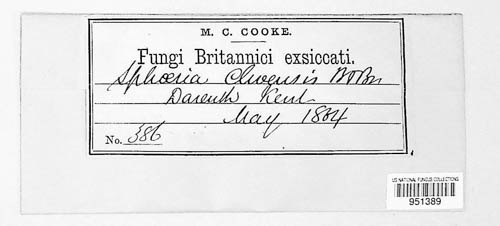 M. C. COOKE.
Fungi Britannici exsiccati.
Sphæria clivensis B & Br
Darenth Kent
May 1864
No. 386
US NATIONAL FUNGUS COLLECTIONS
951389